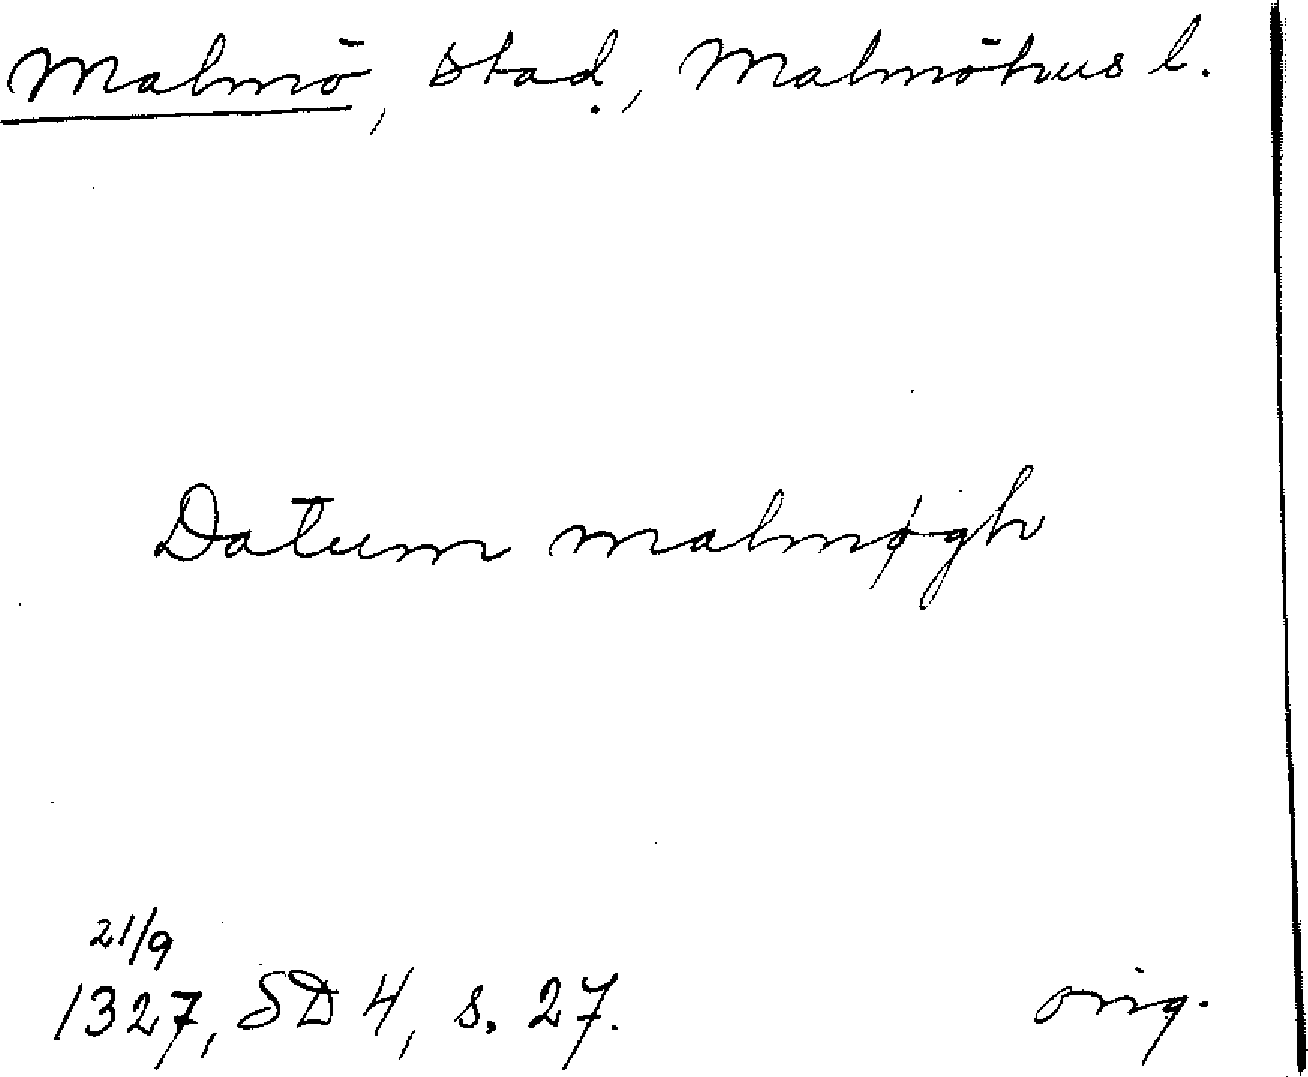 Malmö, stad., Malmöhus l.
Datum malmøgh
21/9
1327, SD 4, s. 27.
orig.